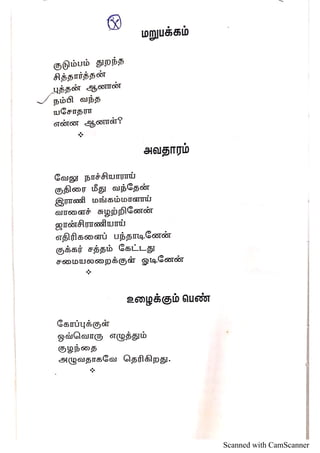 மறுபக்கம்
குடும்பம் துறந்த
சித்தார்த்தன்
புத்தன் ஆனான்
நம்பி வந்த
யசோதரா
என்ன ஆனாள்?
அவதாரம்
வேலு நாச்சியாராய்
குதிரை மீது வந்தேன்
இராணி மங்கம்மாளாய்
வாளைச் சுழற்றினேன்
ஜான்சிராணியாய்
எதிரிகளைப் பந்தாடினேன்
குக்கர் சத்தம் கேட்டது
சமையலறைக்குள் ஓடினேன்
உழைக்கும் பெண்
கோப்புக்குள்
ஒவ்வொரு எழுத்தும்
குழந்தை
அழுவதாகவே தெரிகிறது.
Scanned with CamScanner